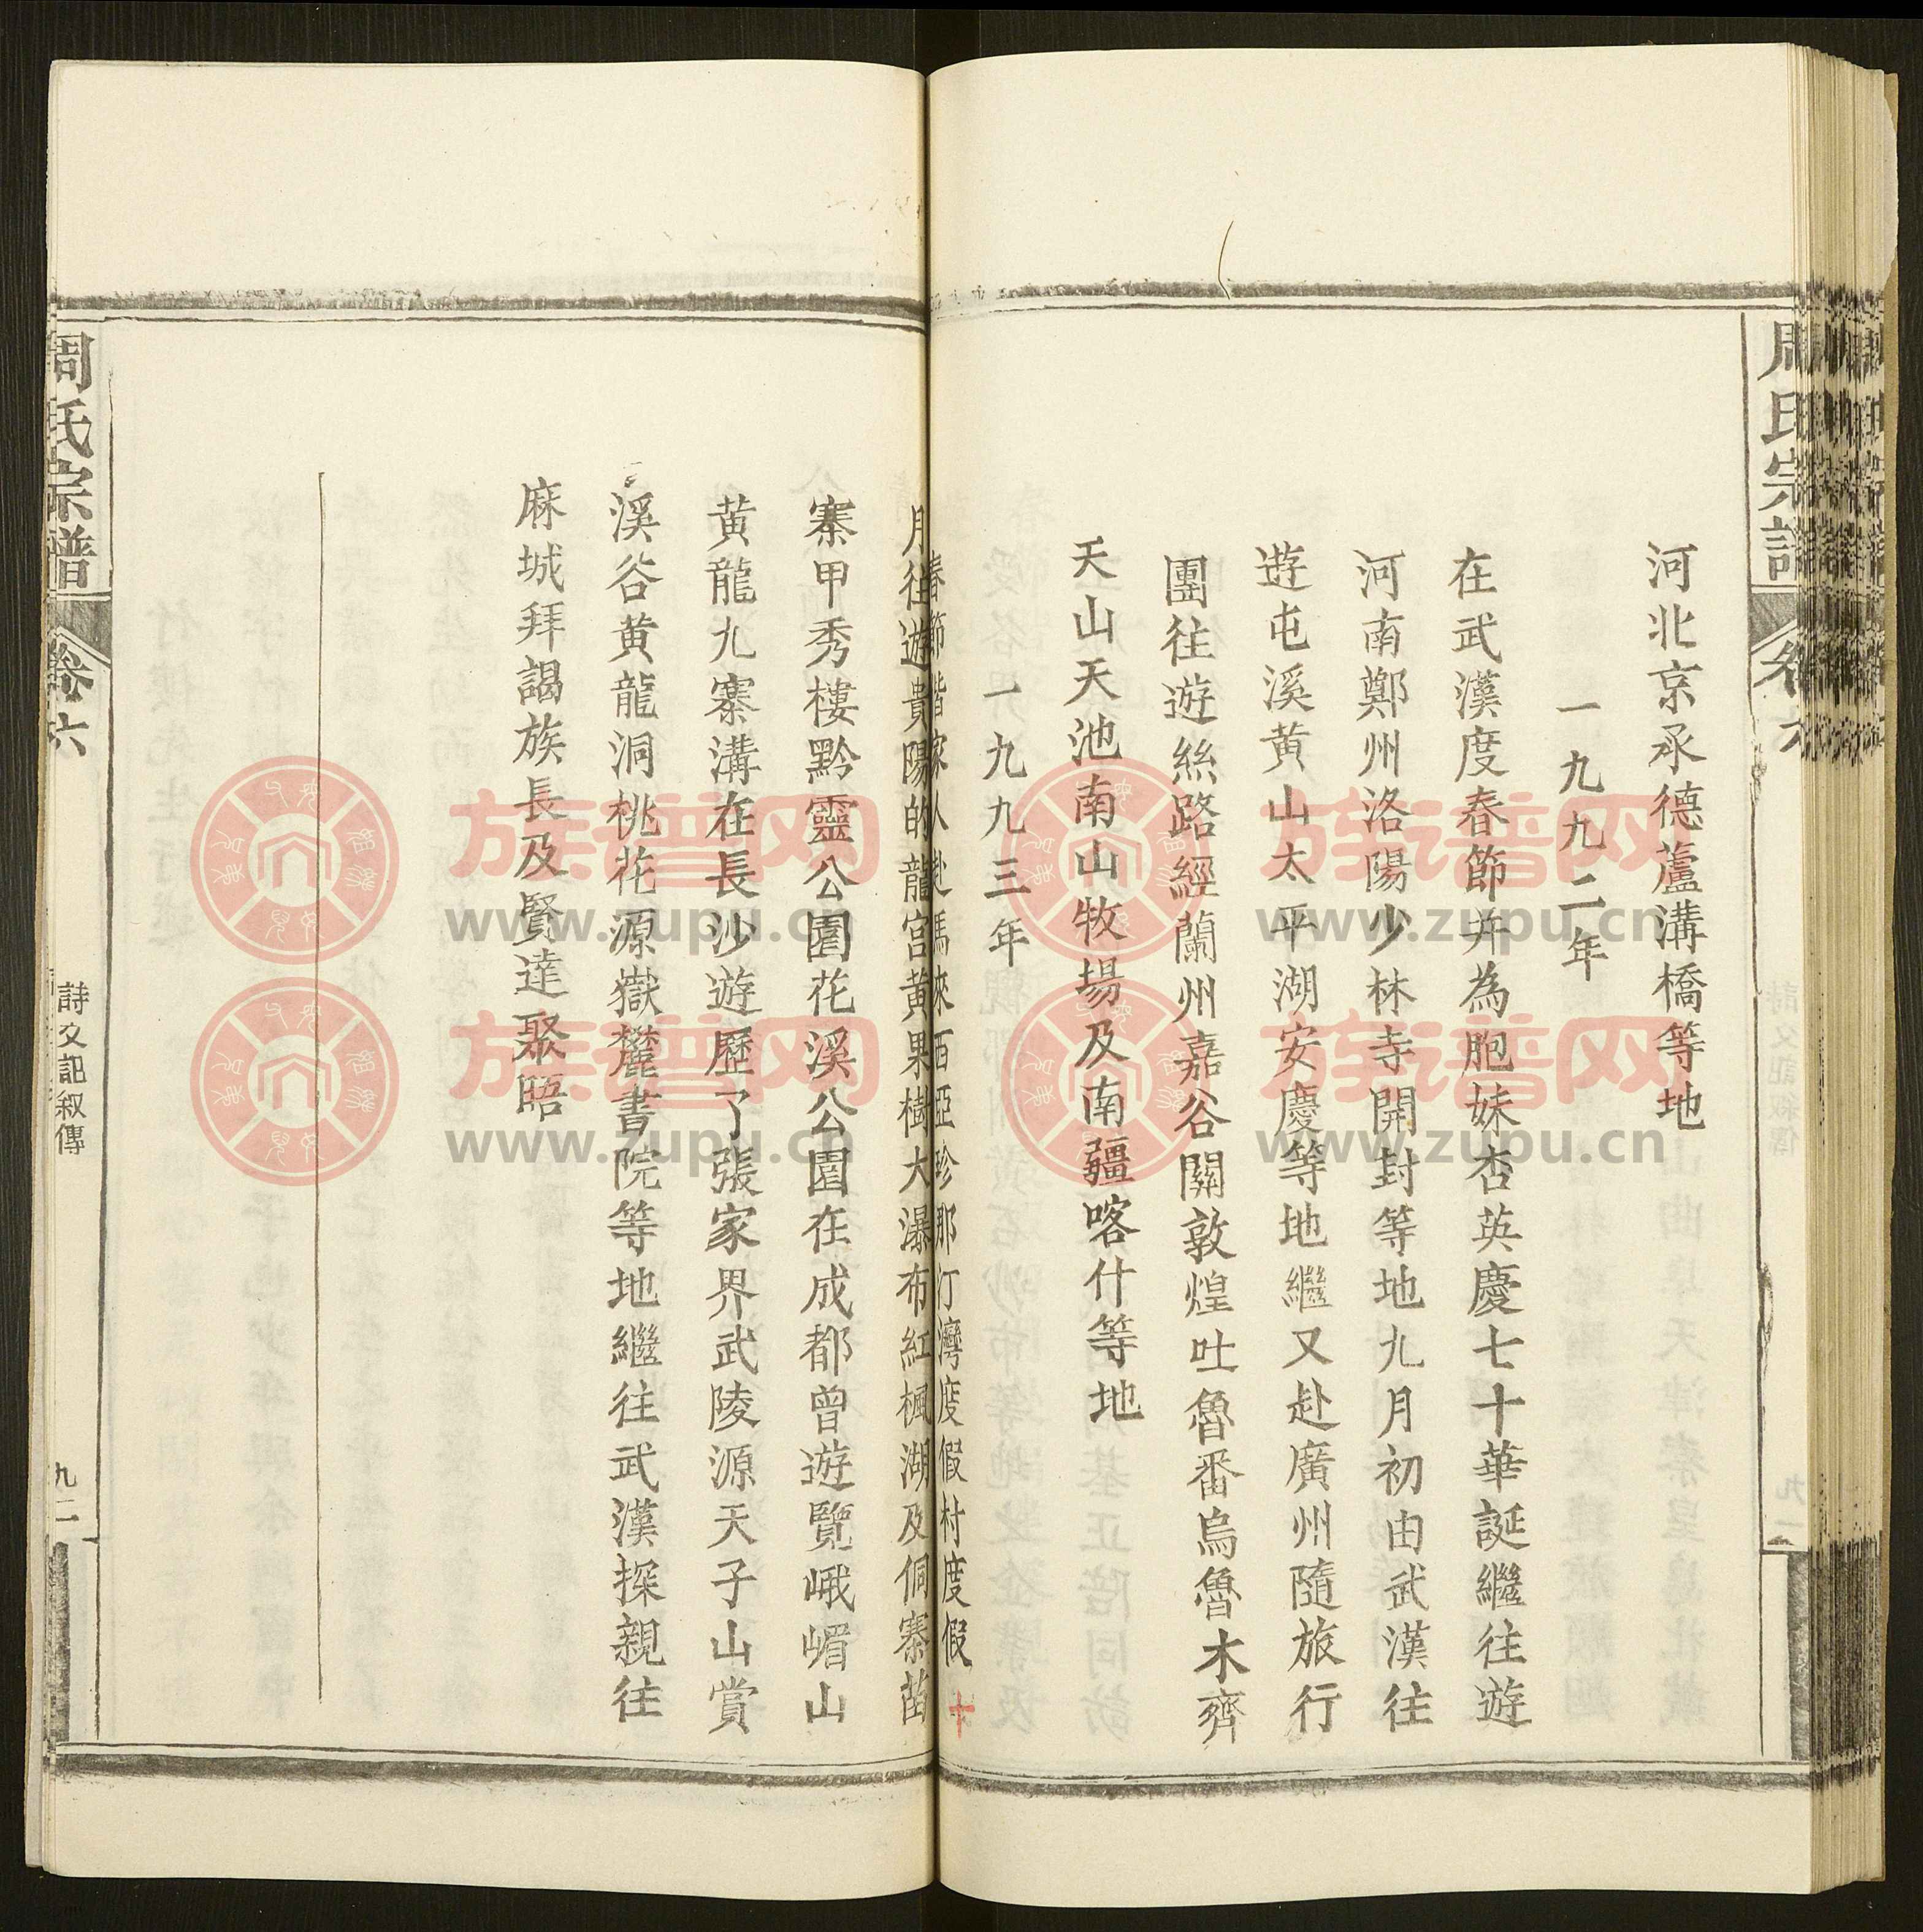 周氏宗譜
河北京承德蘆溝橋等地
一九九二年
在武漢度春節并為胞妹杏英慶七十華誕繼往遊
河南鄭州洛陽少林寺開封等地九月初由武漢往
遊屯溪黄山太平湖安慶等地繼又赴廣州隨旅行
團往遊絲路經蘭州嘉谷關敦煌吐魯番烏魯木齊
天山天池南山牧場及南疆喀什等地
一九九三年
春節偕家人赴馬來西亞珍那汀灣度假村度假
十
月往遊貴陽的龍宮黄果樹大瀑布紅楓湖及侗寨苗
寨甲秀樓黔靈公園花溪公園在成都曾遊覽峨嵋山
黄龍九寨溝在長沙遊歷了張家界武陵源天子山賞
溪谷黄龍洞桃花源嶽麓書院等地繼往武漢探親往
麻城拜謁族長及賢達聚晤
周氏宗譜
卷六
詩文記叙傳
九二
族谱网
www.zupu.cn
族谱网
www.zupu.cn
族谱网
www.zupu.cn
族谱网
www.zupu.cn